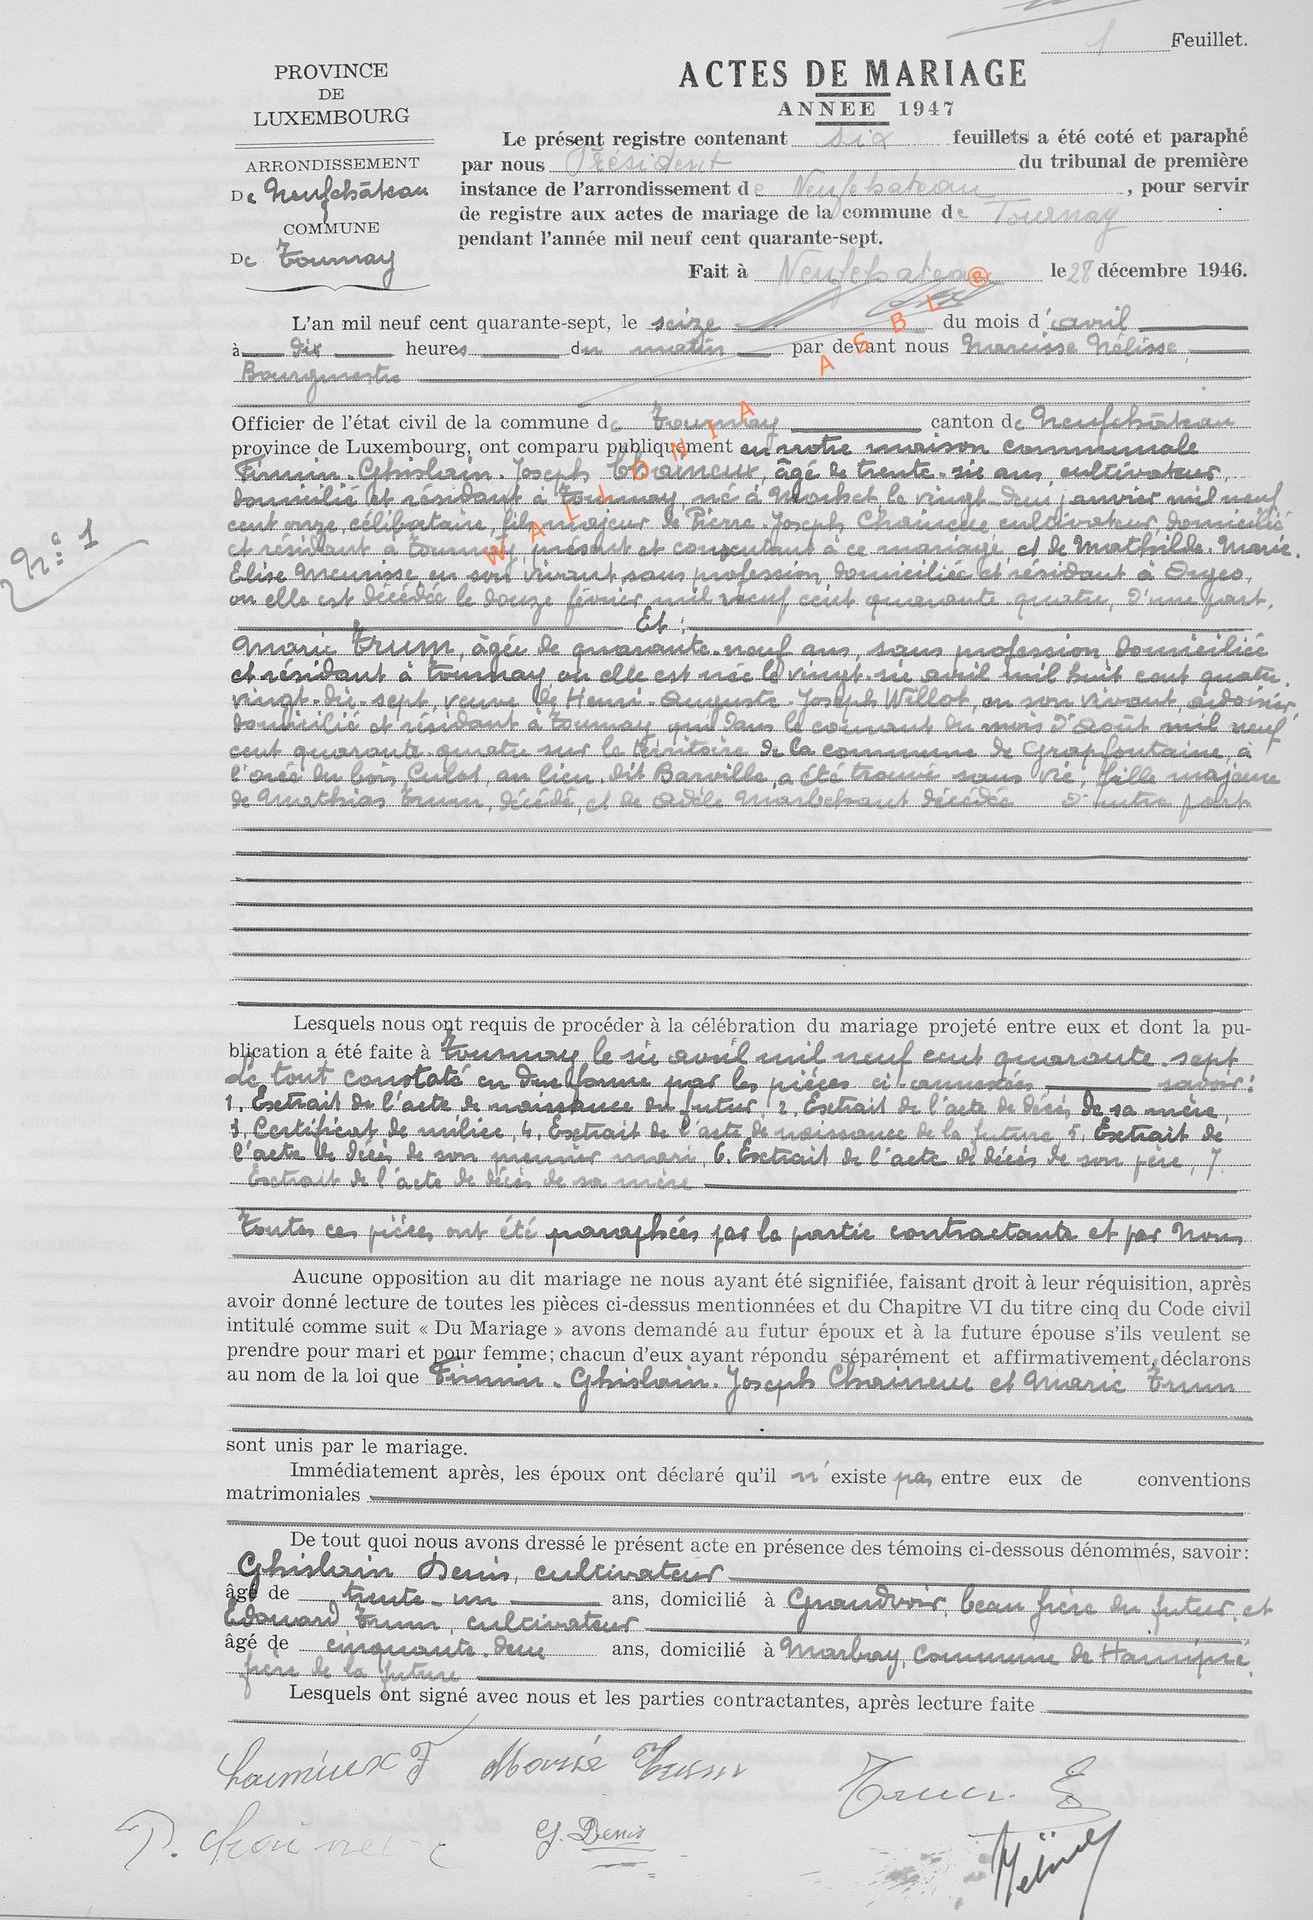 1 Feuillet.
PROVINCE
DE
LUXEMBOURG
ARRONDISSEMENT
De Neufchâteau
COMMUNE
De Tournay
ACTES DE MARIAGE
ANNEE 1947
Le présent registre contenant six feuillets a été coté et paraphé
par nous Président du tribunal de première
instance de l'arrondissement de Neufchateau, pour servir
de registre aux actes de mariage de la commune de Tournay
pendant l'année mil neuf cent quarante-sept.
Fait à Neufchateau le 28 décembre 1946.
WALLONIA ASBL ®
N° 1
L'an mil neuf cent quarante-sept, le seize du mois d'avril
à dix heures du matin par devant nous Narcisse Nélisse,
Bourgmestre
Officier de l'état civil de la commune de Tournay canton de Neufchâteau
province de Luxembourg, ont comparu publiquement en notre maison communale
Firmin-Ghislain-Joseph Chaineux, âgé de trente-six ans, cultivateur,
domicilié et résidant à Tournay, né à Mochet le vingt-deux janvier mil neuf
cent onze, célibataire, fils majeur de Pierre-Joseph Chaineux cultivateur, domicilié
et résidant à Tournay, présent et consentant à ce mariage et de Mathilde-Marie-
Elise Meurisse en son vivant sans profession domiciliée et résidant à Orgeo,
ou elle est décédée le douze février mil neuf cent quarante quatre, d'une part.
Et :
Marie Trum, âgée de quarante-neuf ans, sans profession domiciliée
et résidant à Tournay ou elle est née le vingt-six avril mil huit cent quatre-
vingt-dix-sept, veuve de Henri-Auguste-Joseph Willot, en son vivant, ardoisier,
domicilié et résidant à Tournay, qui dans le courant du mois d'Août mil neuf
cent quarante-quatre sur le territoire de la commune de Grapfontaine, à
l'orée du bois Culot, au lieu dit Barville, a été trouvé sans vie, fille majeure
de Mathias Trum, décédé, et de Adèle Marbehant décédée d'autre part
Lesquels nous ont requis de procéder à la célébration du mariage projeté entre eux et dont la pu-
blication a été faite à Tournay le six avril mil neuf cent quarante-sept
de tout constaté en due forme par les pièces ci annexées savoir :
1. Extrait de l'acte de naissance du futur, 2. Extrait de l'acte de décès de sa mère,
3. Certificat de milice, 4. Extrait de l'acte de naissance de la future, 5. Extrait de
l'acte de décès de son premier mari, 6. Extrait de l'acte de décès de son père, 7.
Extrait de l'acte de décès de sa mère
Toutes ces pièces ont été paraphées par la partie contractante et par Nous
Aucune opposition au dit mariage ne nous ayant été signifiée, faisant droit à leur réquisition, après
avoir donné lecture de toutes les pièces ci-dessus mentionnées et du Chapitre VI du titre cinq du Code civil
intitulé comme suit « Du Mariage » avons demandé au futur époux et à la future épouse s'ils veulent se
prendre pour mari et pour femme; chacun d'eux ayant répondu séparément et affirmativement, déclarons
au nom de la loi que Firmin-Ghislain-Joseph Chaineux et Marie Trum
sont unis par le mariage.
Immédiatement après, les époux ont déclaré qu'il n'existe pas entre eux de conventions
matrimoniales
De tout quoi nous avons dressé le présent acte en présence des témoins ci-dessous dénommés, savoir:
Ghislain Denis, cultivateur
âgé de trente-un ans, domicilié à Grandvoir, beau frère du futur, et
Edouard Trum, cultivateur
âgé de cinquante-deux ans, domicilié à Marbay, commune de Hamipré,
frère de la future
Lesquels ont signé avec nous et les parties contractantes, après lecture faite
Chaineux F Marie Trum Trum. E
P. Chaineux G. Denis Nélisse